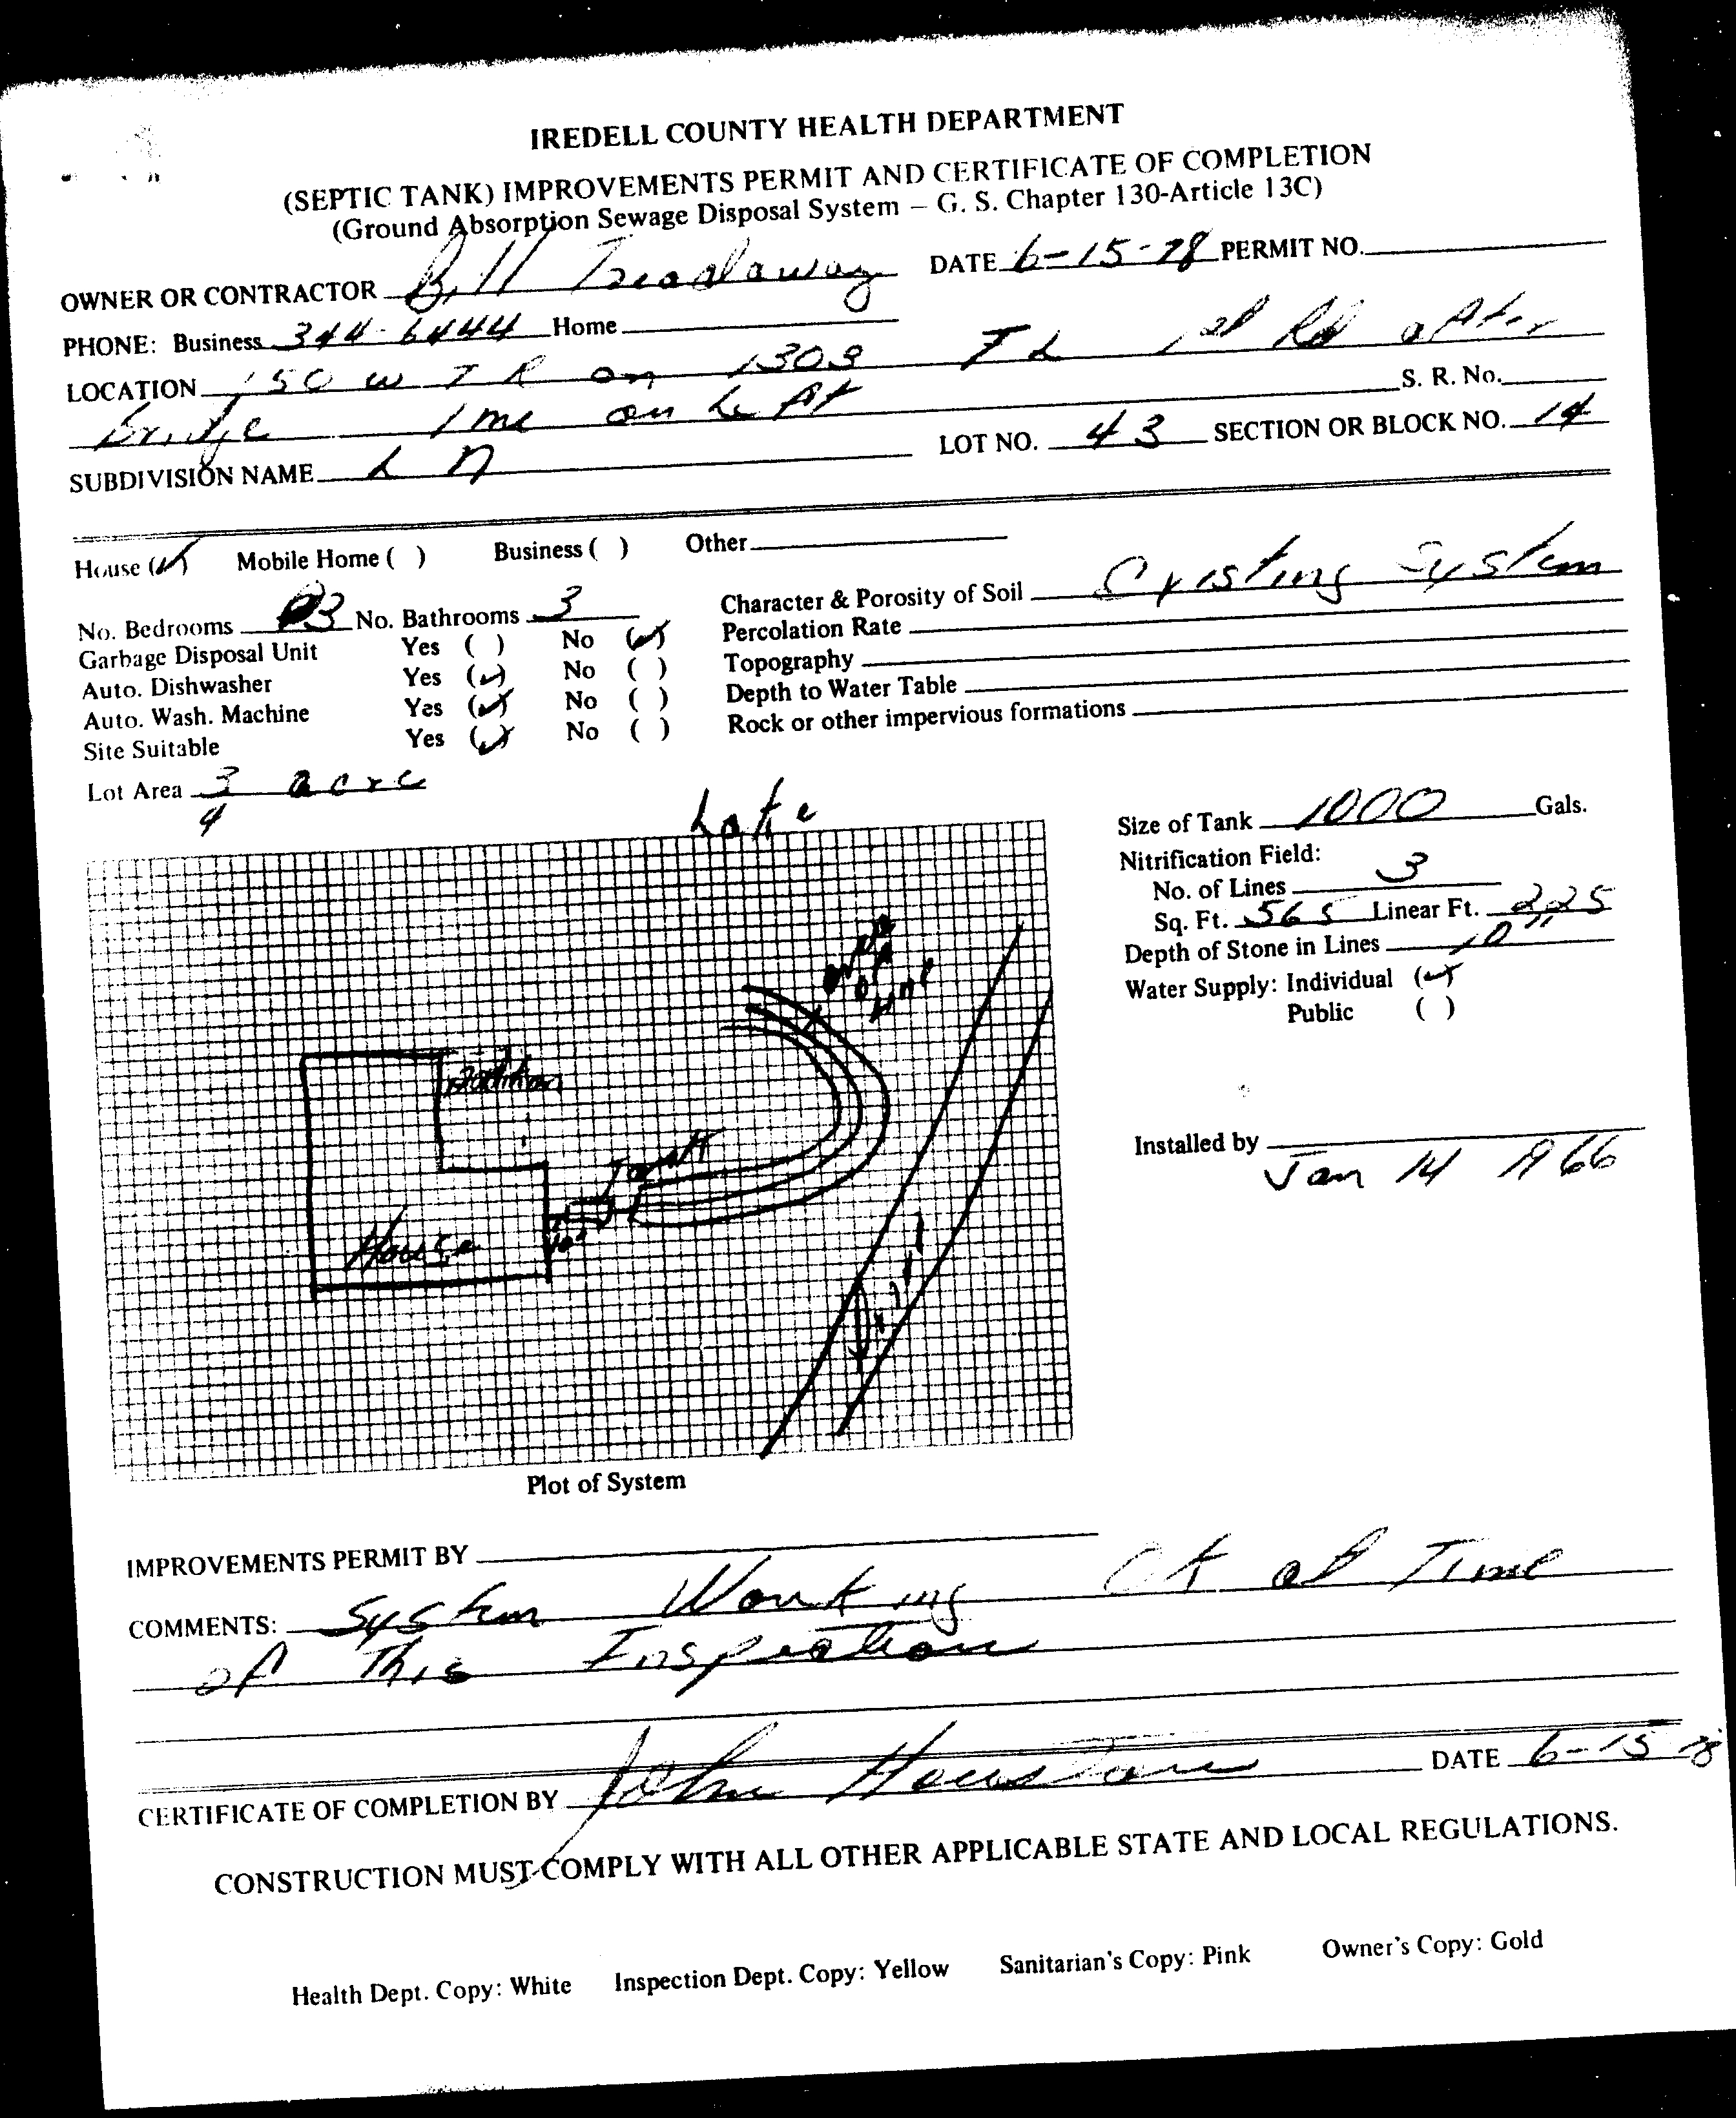 IREDELL COUNTY HEALTH DEPARTMENT
(SEPTIC TANK) IMPROVEMENTS PERMIT AND CERTIFICATE OF COMPLETION
(Ground Absorption Sewage Disposal System – G. S. Chapter 130-Article 13C)
OWNER OR CONTRACTOR Bill Treadaway DATE 6-15-78 PERMIT NO.
PHONE: Business 344-6444 Home
LOCATION 150 W T R on 1303 T L 1st Rd after
Bridge 1 me on Left S. R. No.
SUBDIVISION NAME L N LOT NO. 43 SECTION OR BLOCK NO. 14
House (✓) Mobile Home ( ) Business ( ) Other
No. Bedrooms 3 No. Bathrooms 3 Character & Porosity of Soil Existing System
Garbage Disposal Unit Yes ( ) No (✓) Percolation Rate
Auto. Dishwasher Yes (✓) No ( ) Topography
Auto. Wash. Machine Yes (✓) No ( ) Depth to Water Table
Site Suitable Yes (✓) No ( ) Rock or other impervious formations
Lot Area 3/4 acre
Lake
Size of Tank 1000 Gals.
Nitrification Field:
No. of Lines 3
Sq. Ft. 565 Linear Ft. 225
Depth of Stone in Lines 10"
Water Supply: Individual (✓)
Public ( )
Addition
Tank
House
Installed by
Jan 14 1966
Plot of System
IMPROVEMENTS PERMIT BY
COMMENTS: System Working Ok at Time
of This Inspection
CERTIFICATE OF COMPLETION BY John Houston DATE 6-15-78
CONSTRUCTION MUST COMPLY WITH ALL OTHER APPLICABLE STATE AND LOCAL REGULATIONS.
Health Dept. Copy: White Inspection Dept. Copy: Yellow Sanitarian's Copy: Pink Owner's Copy: Gold